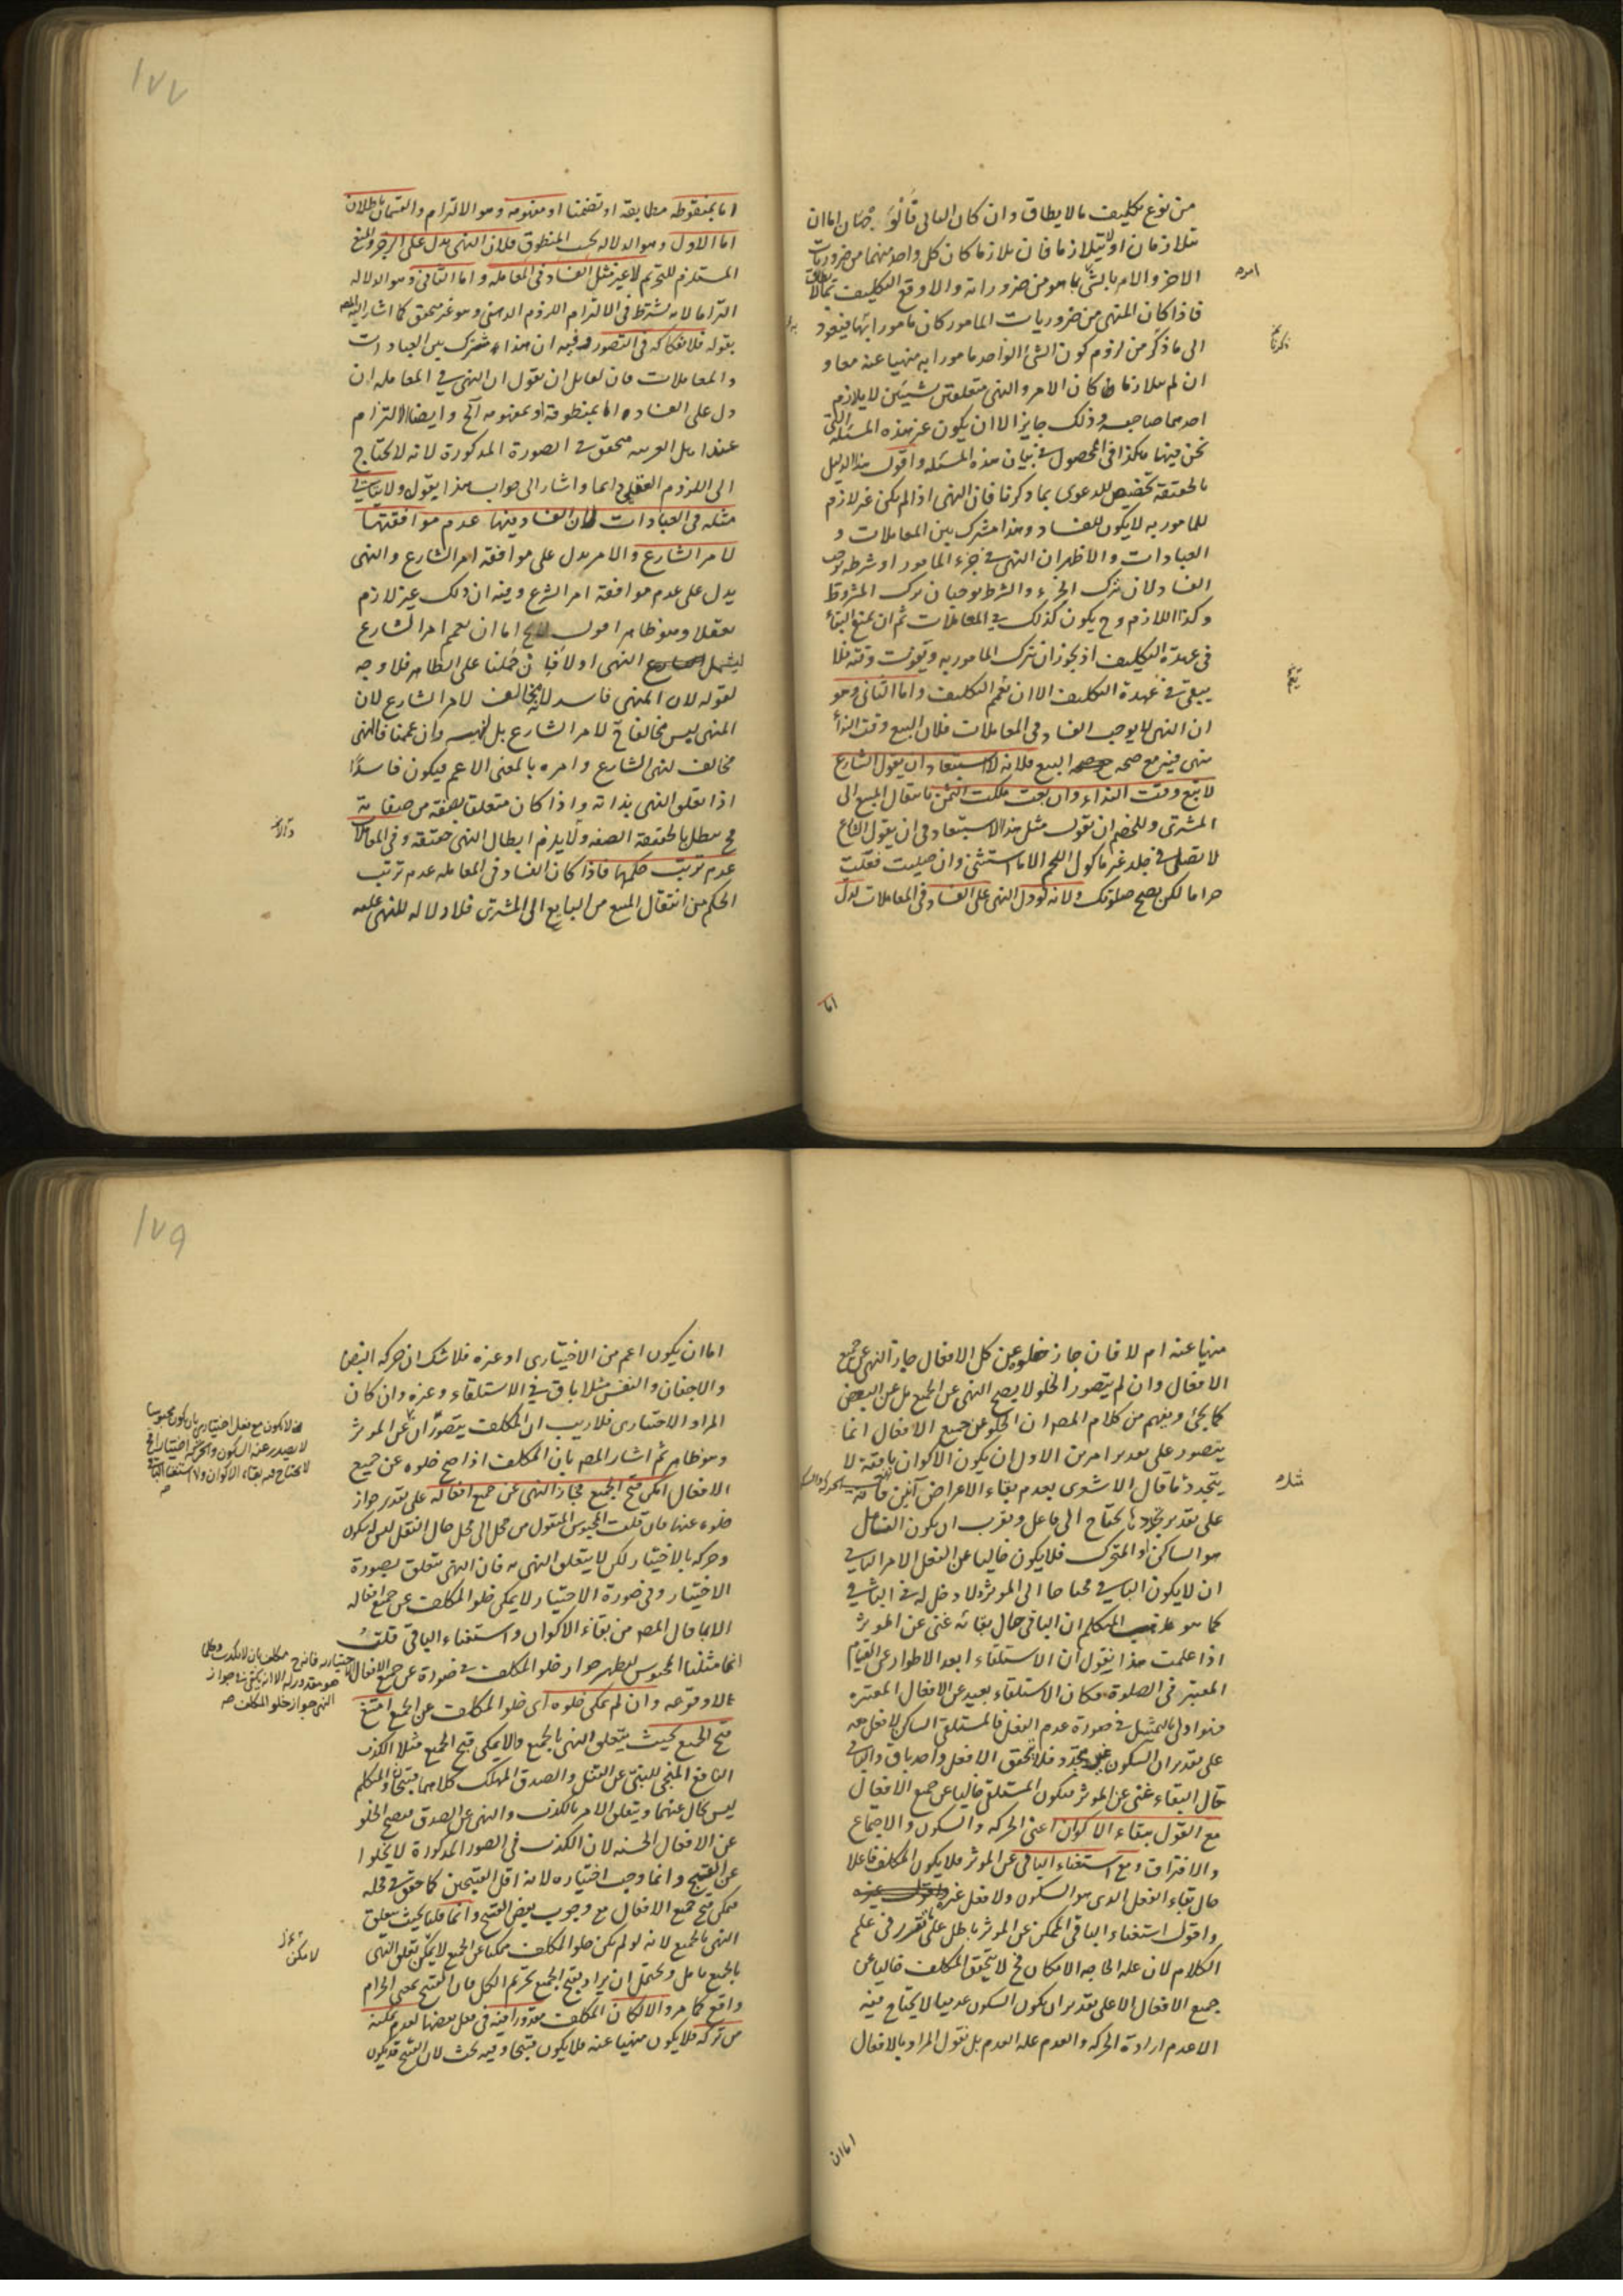 من نوع تكليف ما لا يطاق وان كان الثانى قالوا
يتلازمان او لا يتلازما فان تلازما كان كل واحد منهما من ضروريات
الاخر والامر بالشئ بما هو من ضروراته والا وقع التكليف بما لا يطاق
فاذا كان المنهى من ضروريات المامور كان مامورا به فيعود
الى ما ذكر من لزوم كون الشئ الواحد مامورا به منهيا عنه معا و
ان لم يتلازما كان الامر والنهى متعلقين بشيئين لا يلازم
احدهما صاحبه وذلك جايز الا ان يكون غير هذه المسئلة التى
نحن فيها هكذا فى المحصول فى بيان هذه المسئله واقول هذا الدليل
بالحقيقة تخصيص للدعوى بما ذكرنا فان النهى اذا لم يكن غير لازم
للمامور به لا يكون للفساد وهذا مشترك بين المعاملات و
العبادات والاظهر ان النهى فى جزء المامور او شرطه يوجب
الفساد لان ترك الجزء والشرط يوجبان ترك المشروط
وكذا اللازم وح يكون كذلك فى المعاملات ثم ان يمنع البقاء
فى عهدة التكليف اذ يجوز ان ترك المامور به ويفوت وقته فلا
يبقى فى عهدة التكليف الا ان نعمم التكليف واما الثانى وهو
ان النهى لا يوجب الفساد فى المعاملات فلان البيع وقت النداء
منهى فيه مع صحه البيع فلانه لا استبعاد ان يقول الشارع
لا تبع وقت النداء وان بعت ملكت الثمن بانتقال المبيع الى
المشترى وللخصم ان يقول مثل هذا لا استبعاد فى ان يقول الشارع
لا تصل فى جلد غير ماكول اللحم الا ما استثنى وان صليت فعلت
حراما لكن يصح صلوتك ولانه لو دل النهى على الفساد فى المعاملات لدل
اما
١٧٧
اما بمنطوقه مطابقة او تضمنا او مفهومه وهو الالتزام والقسمان باطلان
اما الاول وهو الدلاله بحسب المنطوق فلان النهى يدل على الزجر والمنع
المستلزم للتحريم لا غير مثل الفساد فى المعامله واما الثانى وهو الدلاله
التزاما لانه يشترط فى الالتزام اللزوم الذهنى وهو غير متحقق كما اشار اليه المص
بقوله فلانفكاكه فى التصور وفيه ان هذا مشترك بين العبادات
والمعاملات فان لقايل ان يقول ان النهى فى المعامله ان
دل على الفساد اما بمنطوقه او بمفهومه آلخ وايضا الالتزام
عند اهل العربيه متحقق فى الصورة المذكورة لانه لا يحتاج
الى اللزوم العقلى دايما واشار الى جواب هذا بقوله ولا يتاتى
مثله فى العبادات لان الفساد فيها عدم موافقتها
لامر الشارع والامر يدل على موافقة امر الشارع والنهى
يدل على عدم موافقة امر الشرع وفيه ان ذلك غير لازم
عقلا وهو ظاهر اقول اما ان نعمم امر الشارع
ليشمل النهى اولا فان حملنا على الظاهر فلا وجه
لقوله لان المنهى فاسد لانه مخالف لامر الشارع لان
المنهى ليس مخالفا لامر الشارع بل لنهيه وان عممنا فالمنهى
مخالف لنهى الشارع وامره بالمعنى الاعم فيكون فاسدا
اذا تعلق النهى بذاته واذا كان متعلقا بصفة من صفاته
فح يبطل بالحقيقة الصفه ولا يلزم ابطال المنهى حقيقة وفى المعاملات
عدم ترتب حكمها فاذا كان الفساد فى المعامله عدم ترتب
الحكم من انتقال المبيع من البايع الى المشترى فلا دلاله للنهى عليه
منهيا عنه ام لا فان جاز خلوه عن كل الافعال جاز النهى عن جميع
الافعال وان لم يتصور الخلو لا يصح النهى عن الجميع بل عن البعض
كما يجئ ويفهم من كلام المص ان الخلو عن جميع الافعال انما
يتصور على تقدير امرين الاول ان يكون الاكوان باقية لا
يتجدد كما قال الاشعرى بعدم بقاء الاعراض آنين فانه
على تقدير تجدد ما يحتاج الى فاعل ويقرب ان يكون الفاعل
هو الساكن او المتحرك فلا يكون خاليا عن الفعل الامر الثانى
ان لا يكون الباقى محتاجا الى الموثر ولا دخل له فى الباقى
كما هو مذهب المتكلم ان الباقى حال بقائه غنى عن الموثر
اذا علمت هذا يقول ان الاستلقاء ابعد الاطوار عن القيام
المعتبر فى الصلوة فكان الاستلقاء بعيد عن الافعال المعتبره
فهو اولى بالتمثيل فى صورة عدم الفعل فالمستلقى الساكن لا فعل له
على تقدير ان السكون غير متجدد فلا يتحقق الا فعل واحد باق والباقى
حال البقاء غنى عن الموثر فيكون المستلقى خاليا عن جميع الافعال
مع القول ببقاء الاكوان اعنى الحركه والسكون والاجتماع
والافتراق ومع استغناء الباقى عن الموثر فلا يكون المكلف فاعلا
حال بقاء الفعل الذى هو السكون ولا فعل غيره
واقول استغناء الباقى الممكن عن الموثر باطل على ما تقرر فى علم
الكلام لان عله الحاجه الامكان فح لا يتحقق المكلف خاليا عن
جميع الافعال الا على تقدير ان يكون السكون عدميا لا يحتاج فيه
الا عدم ارادة الحركه والعدم عله العدم بل نقول المراد بالافعال
اما ان
١٧٩
اما ان يكون اعم من الاختيارى او غيره فلا شك ان حركه النبض
والاجفان والنفس مثلا باق فى الاستلقاء وغيره وان كان
المراد الاختيارى فلا ريب ان المكلف يتصور ان عن الموثر
وهو ظاهر ثم اشار المص بان المكلف اذا صح خلوه عن جميع
الافعال امكن قبح الجميع فجاز النهى عن جميع افعاله على تقدير جواز
خلوه عنها فان قلت المحبوس المنقول من محل الى محل حال النقل ليس له سكون
وحركه بالاختيار لكن لا يتعلق النهى به فان النهى يتعلق بصورة
الاختيار وفى صورة الاختيار لا يمكن خلو المكلف عن جميع افعاله
الا بما قال المص من بقاء الاكوان واستغناء الباقى قلت
انما مثلنا المحبوس ليظهر جواز خلو المكلف فى صورة عن جميع الافعال
لا وقوعه وان لم يمكن خلوه اى خلو المكلف عن الجميع امتنع
قبح الجميع بحيث يتعلق النهى بالجميع والا يمكن قبح الجميع مثلا الكذب
النافع المنجى للنبى عن القتل والصدق المهلك كلاهما قبيحان والمتكلم
ليس بخال عنهما ويتعلق الامر بالكذب والنهى عن الصدق فيصح الخلو
عن الافعال الحسنه لان الكذب فى الصور المذكورة لا يخلوا
عن القبح وانما وجب اختياره لانه اقل القبيحين كما حقق فى محله
فيمكن قبح جميع الافعال مع وجوب بعض القبيح وانما قلنا بحيث يتعلق
النهى بالجميع لانه لو لم يكن خلو المكلف ممكنا عن الجميع لا يمكن تعلق النهى
بالجميع تامل ويحتمل ان يراد بقبح الجميع تحريم الكل فان القبيح بمعنى الحرام
واقع كما مر والا لكان المكلف معذورا فيه فى فعل بعضها لعدم تمكنه
من تركه فلا يكون منهيا عنه فلا يكون قبيحا وفيه بحث لان القبيح قد يكون